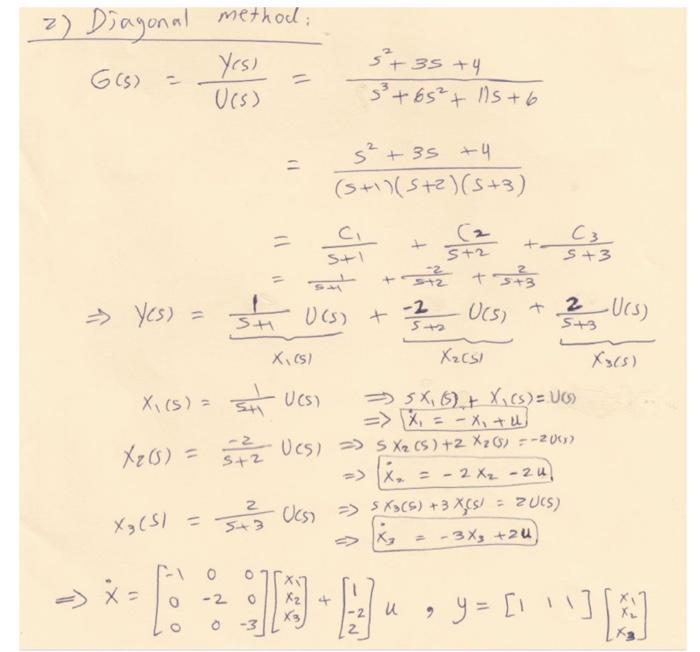 2) Diagonal method:
G(s) = Y(s)/U(s) = (s² + 3s + 4)/(s³ + 6s² + 11s + 6)
= (s² + 3s + 4)/((s+1)(s+2)(s+3))
= C₁/(s+1) + C₂/(s+2) + C₃/(s+3)
= 1/(s+1) + -2/(s+2) + 2/(s+3)
⇒ Y(s) = 1/(s+1) U(s) + -2/(s+2) U(s) + 2/(s+3) U(s)
X₁(s) X₂(s) X₃(s)
X₁(s) = 1/(s+1) U(s) ⇒ sX₁(s) + X₁(s) = U(s)
⇒ ẋ₁ = -x₁ + u
X₂(s) = -2/(s+2) U(s) ⇒ sX₂(s) + 2X₂(s) = -2U(s)
⇒ ẋ₂ = -2x₂ - 2u
X₃(s) = 2/(s+3) U(s) ⇒ sX₃(s) + 3X₃(s) = 2U(s)
⇒ ẋ₃ = -3x₃ + 2u
⇒ ẋ = [-1 0 0; 0 -2 0; 0 0 -3] [x₁; x₂; x₃] + [1; -2; 2] u , y = [1 1 1] [x₁; x₂; x₃]